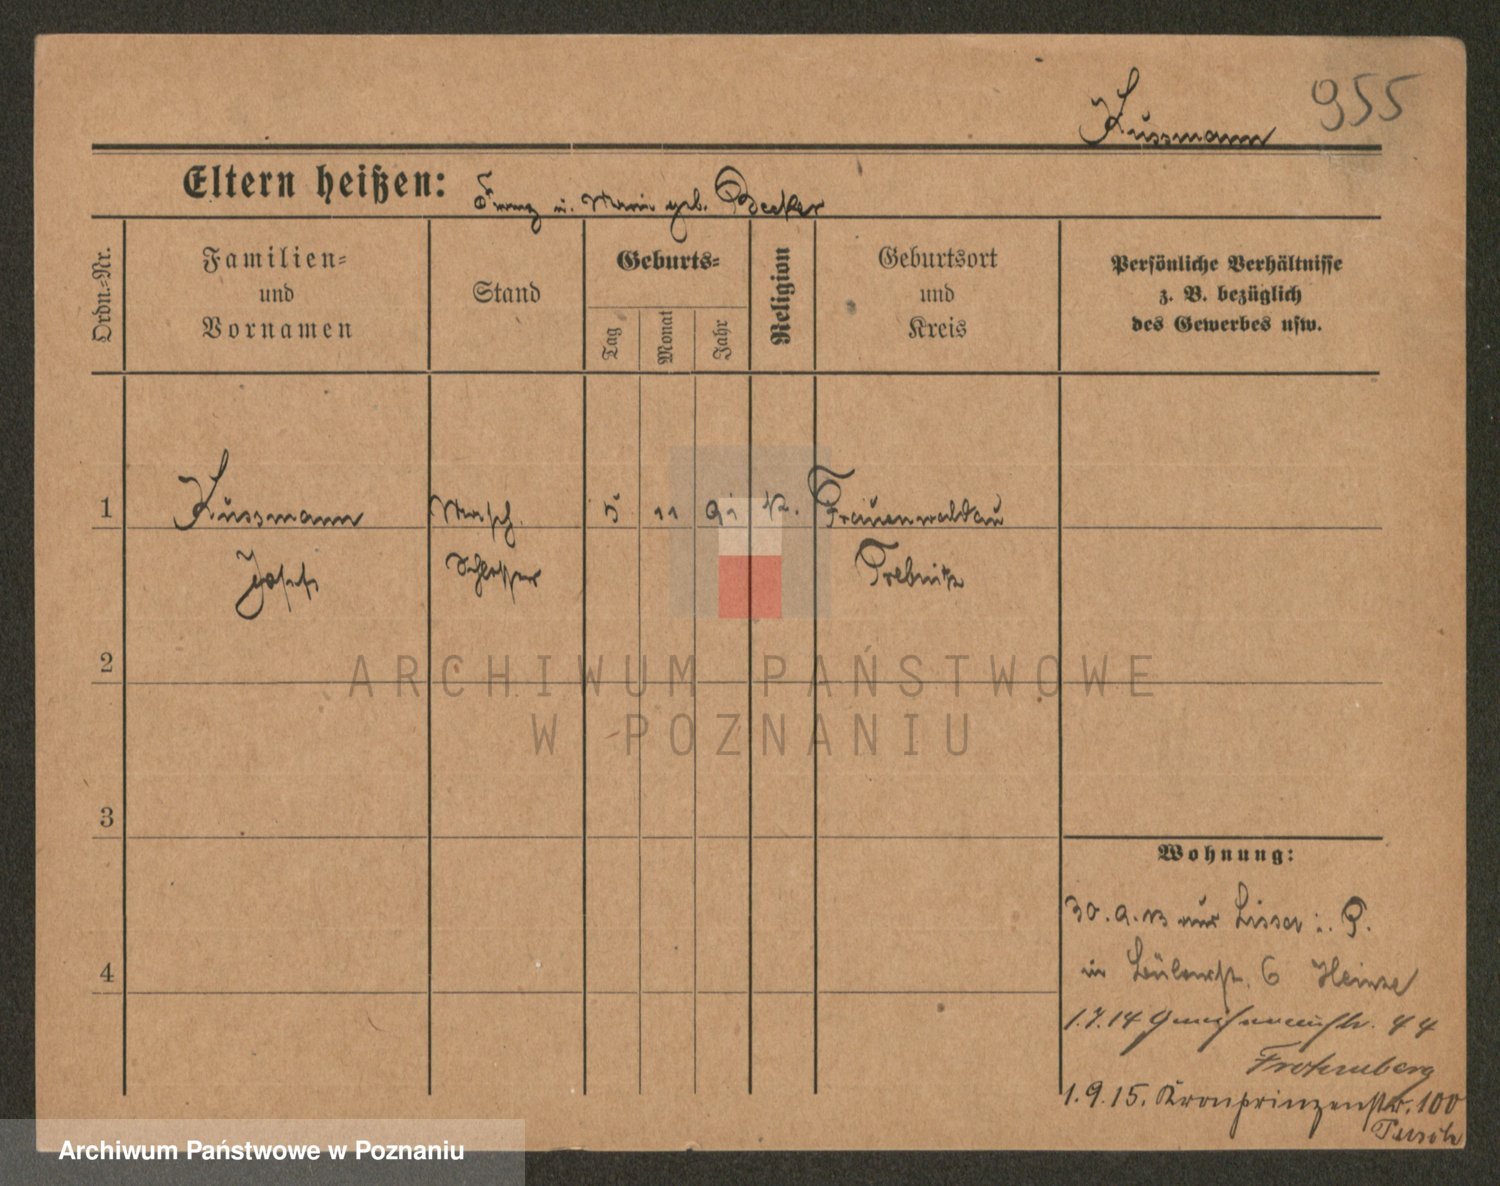 955
Kussmann
Eltern heißen: Franz u. Marie geb. Becker
Ordn.-Nr.
Familien-
und
Vornamen
Stand
Geburts-
Tag
Monat
Jahr
Religion
Geburtsort
und
Kreis
Persönliche Verhältnisse
z. B. bezüglich
des Gewerbes usw.
1 Kussmann Masch. 5 11 91 k. Frauenwaldau
Josef Schlosser Trebnitz
2
ARCHIWUM PAŃSTWOWE
W POZNANIU
3
Wohnung:
30.9.13 aus Lissa i. P.
in 6 Heinze
4
1.7.14 44
1.9.15. Kronprinzenstr. 100
Archiwum Państwowe w Poznaniu